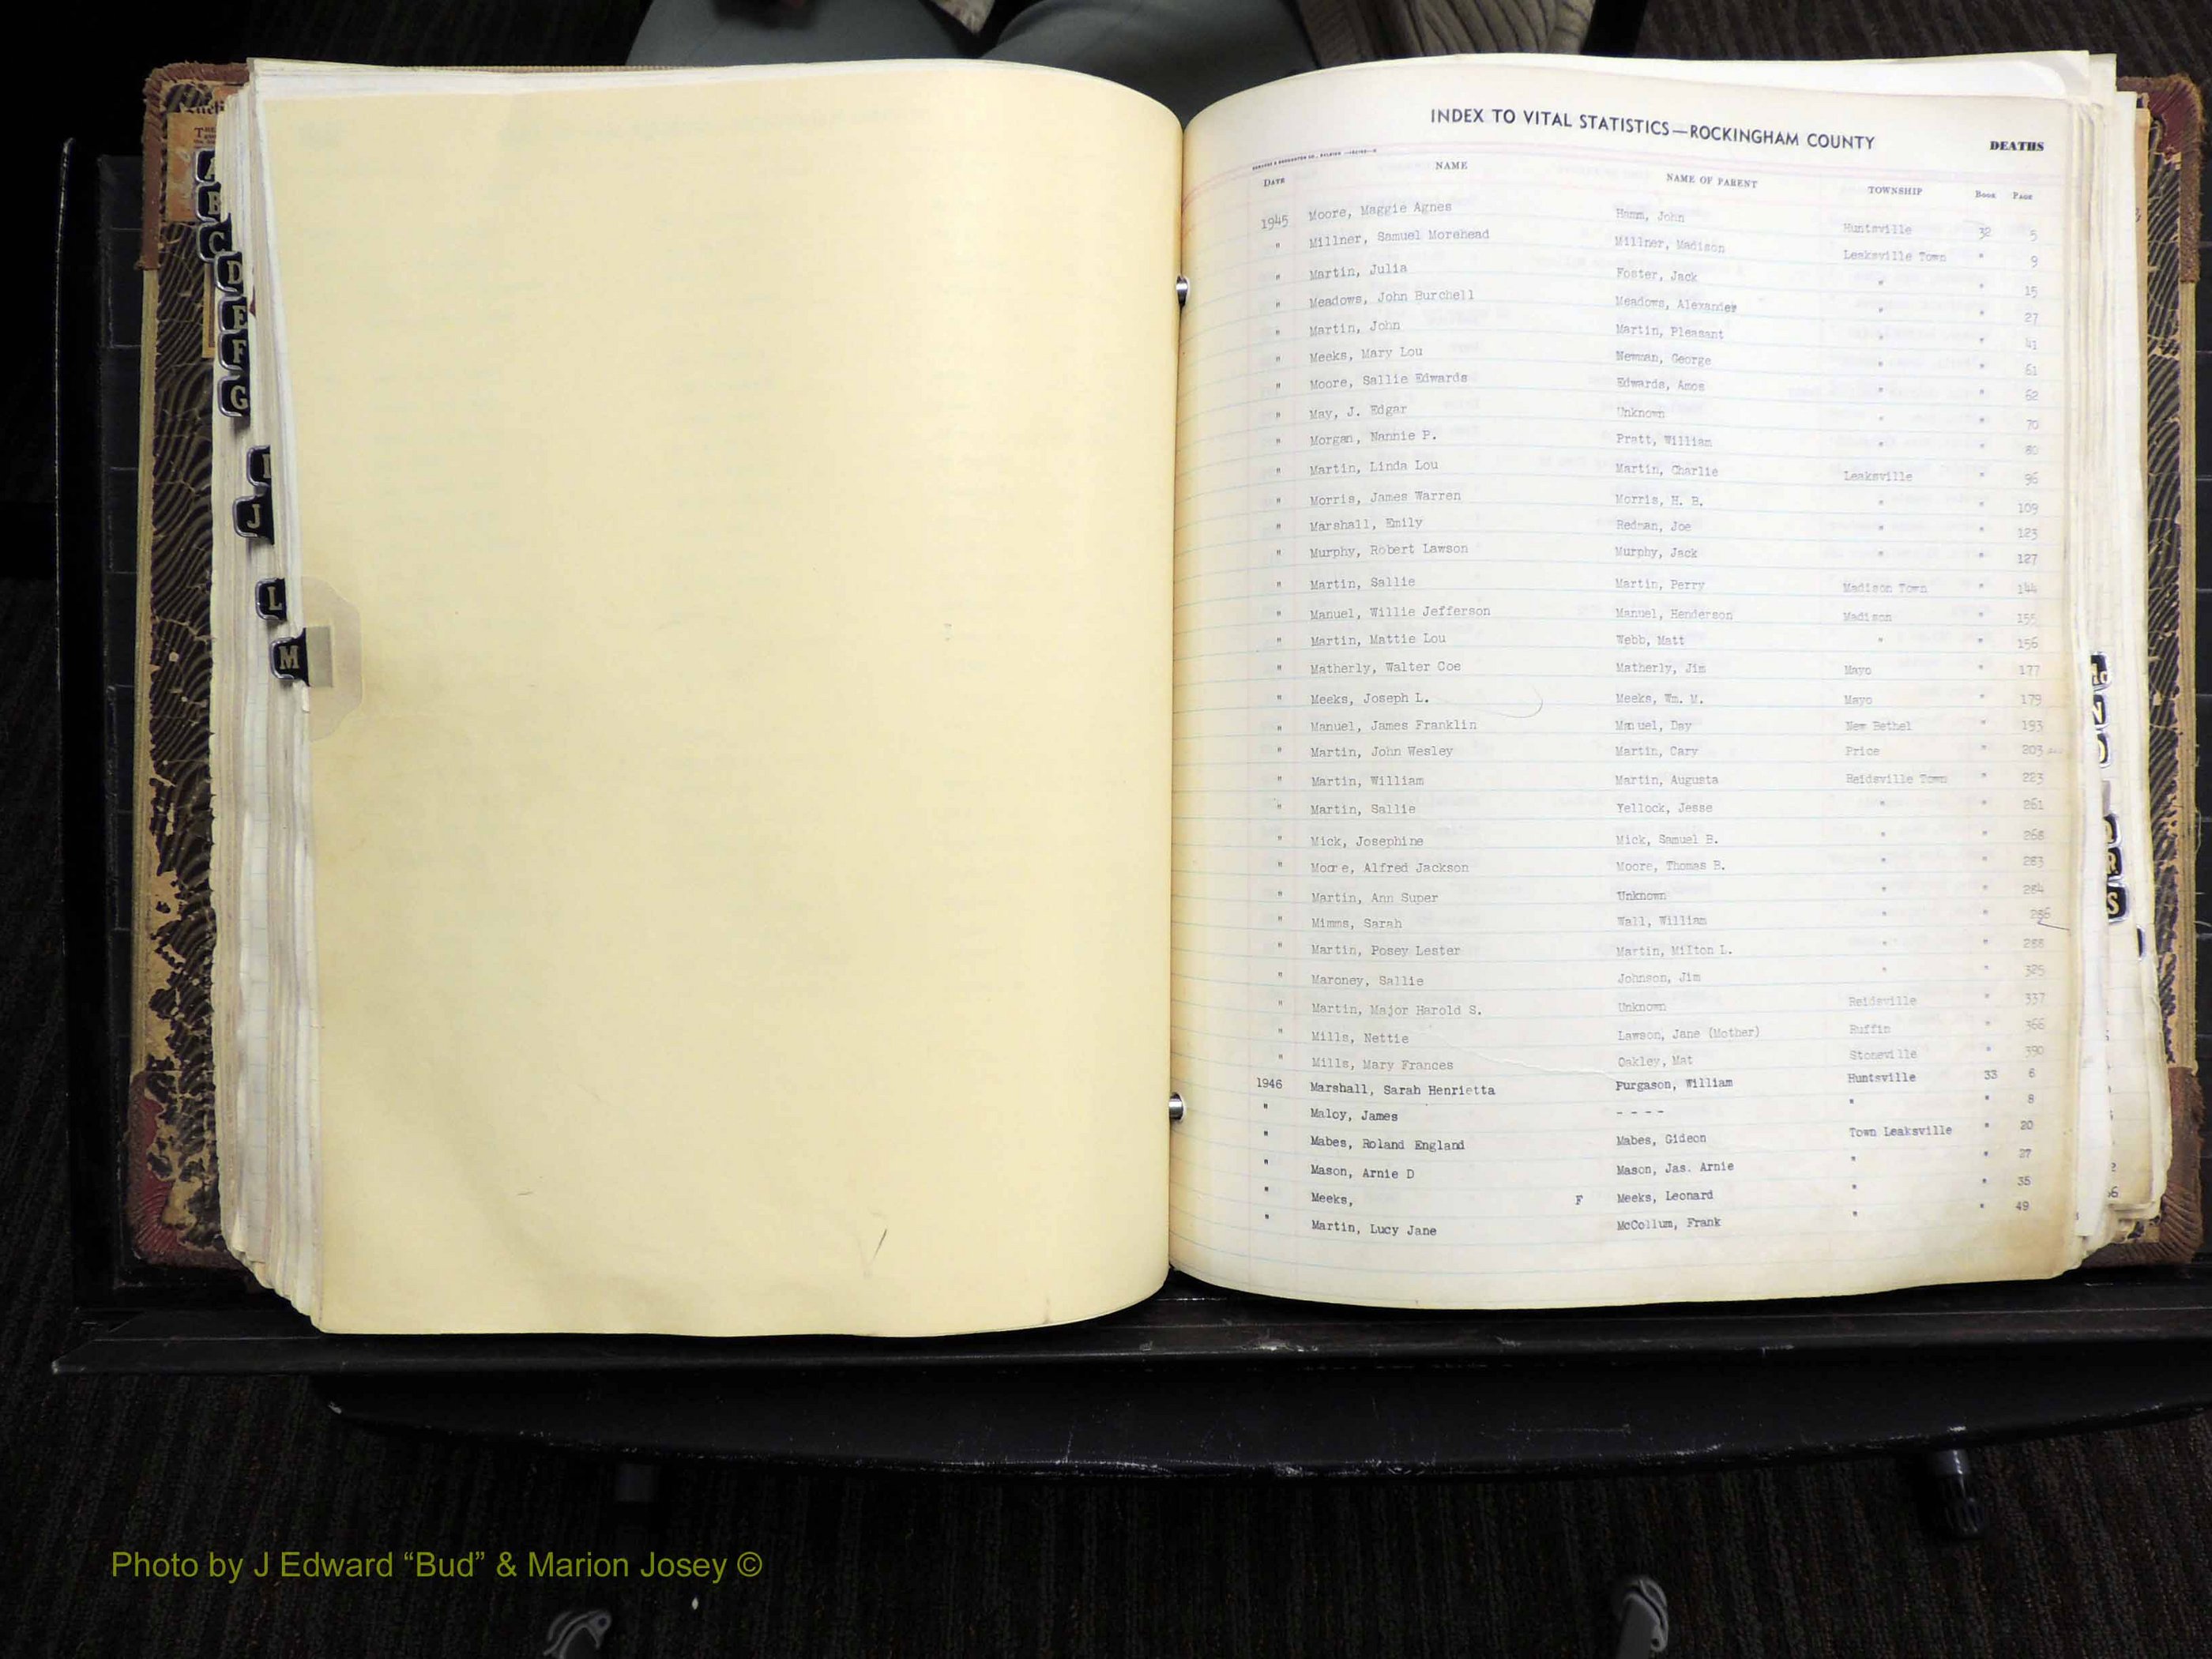 INDEX TO VITAL STATISTICS—ROCKINGHAM COUNTY DEATHS
DATE NAME NAME OF PARENT TOWNSHIP Book Page
1945 Moore, Maggie Agnes Hamm, John Huntsville 32 5
" Millner, Samuel Morehead Millner, Madison Leaksville Town " 9
" Martin, Julia Foster, Jack " " 15
" Meadows, John Burchell Meadows, Alexander " " 27
" Martin, John Martin, Pleasant " " 41
" Meeks, Mary Lou Newman, George " " 61
" Moore, Sallie Edwards Edwards, Amos " " 62
" May, J. Edgar Unknown " " 70
" Morgan, Nannie P. Pratt, William " " 80
" Martin, Linda Lou Martin, Charlie Leaksville " 96
" Morris, James Warren Morris, H. B. " " 109
" Marshall, Emily Redman, Joe " " 123
" Murphy, Robert Lawson Murphy, Jack " " 127
" Martin, Sallie Martin, Perry Madison Town " 144
" Manuel, Willie Jefferson Manuel, Henderson Madison " 155
" Martin, Mattie Lou Webb, Matt " " 156
" Matherly, Walter Coe Matherly, Jim Mayo " 177
" Meeks, Joseph L. Meeks, Wm. M. Mayo " 179
" Manuel, James Franklin Manuel, Day New Bethel " 193
" Martin, John Wesley Martin, Cary Price " 203
" Martin, William Martin, Augusta Reidsville Town " 223
" Martin, Sallie Yellock, Jesse " " 261
" Mick, Josephine Mick, Samuel B. " " 268
" Moore, Alfred Jackson Moore, Thomas B. " " 283
" Martin, Ann Super Unknown " " 284
" Mimms, Sarah Wall, William " " 286
" Martin, Posey Lester Martin, Milton L. " " 288
" Maroney, Sallie Johnson, Jim " " 325
" Martin, Major Harold S. Unknown Reidsville " 337
" Mills, Nettie Lawson, Jane (Mother) Ruffin " 366
" Mills, Mary Frances Oakley, Mat Stoneville " 390
1946 Marshall, Sarah Henrietta Furgason, William Huntsville 33 6
" Maloy, James - - - - " " 8
" Mabes, Roland England Mabes, Gideon Town Leaksville " 20
" Mason, Arnie D Mason, Jas. Arnie " " 27
" Meeks, F Meeks, Leonard " " 35
" Martin, Lucy Jane McCollum, Frank " " 49
A
B
C
D
E
F
G
I
J
L
M
R
S
Photo by J Edward “Bud” & Marion Josey ©